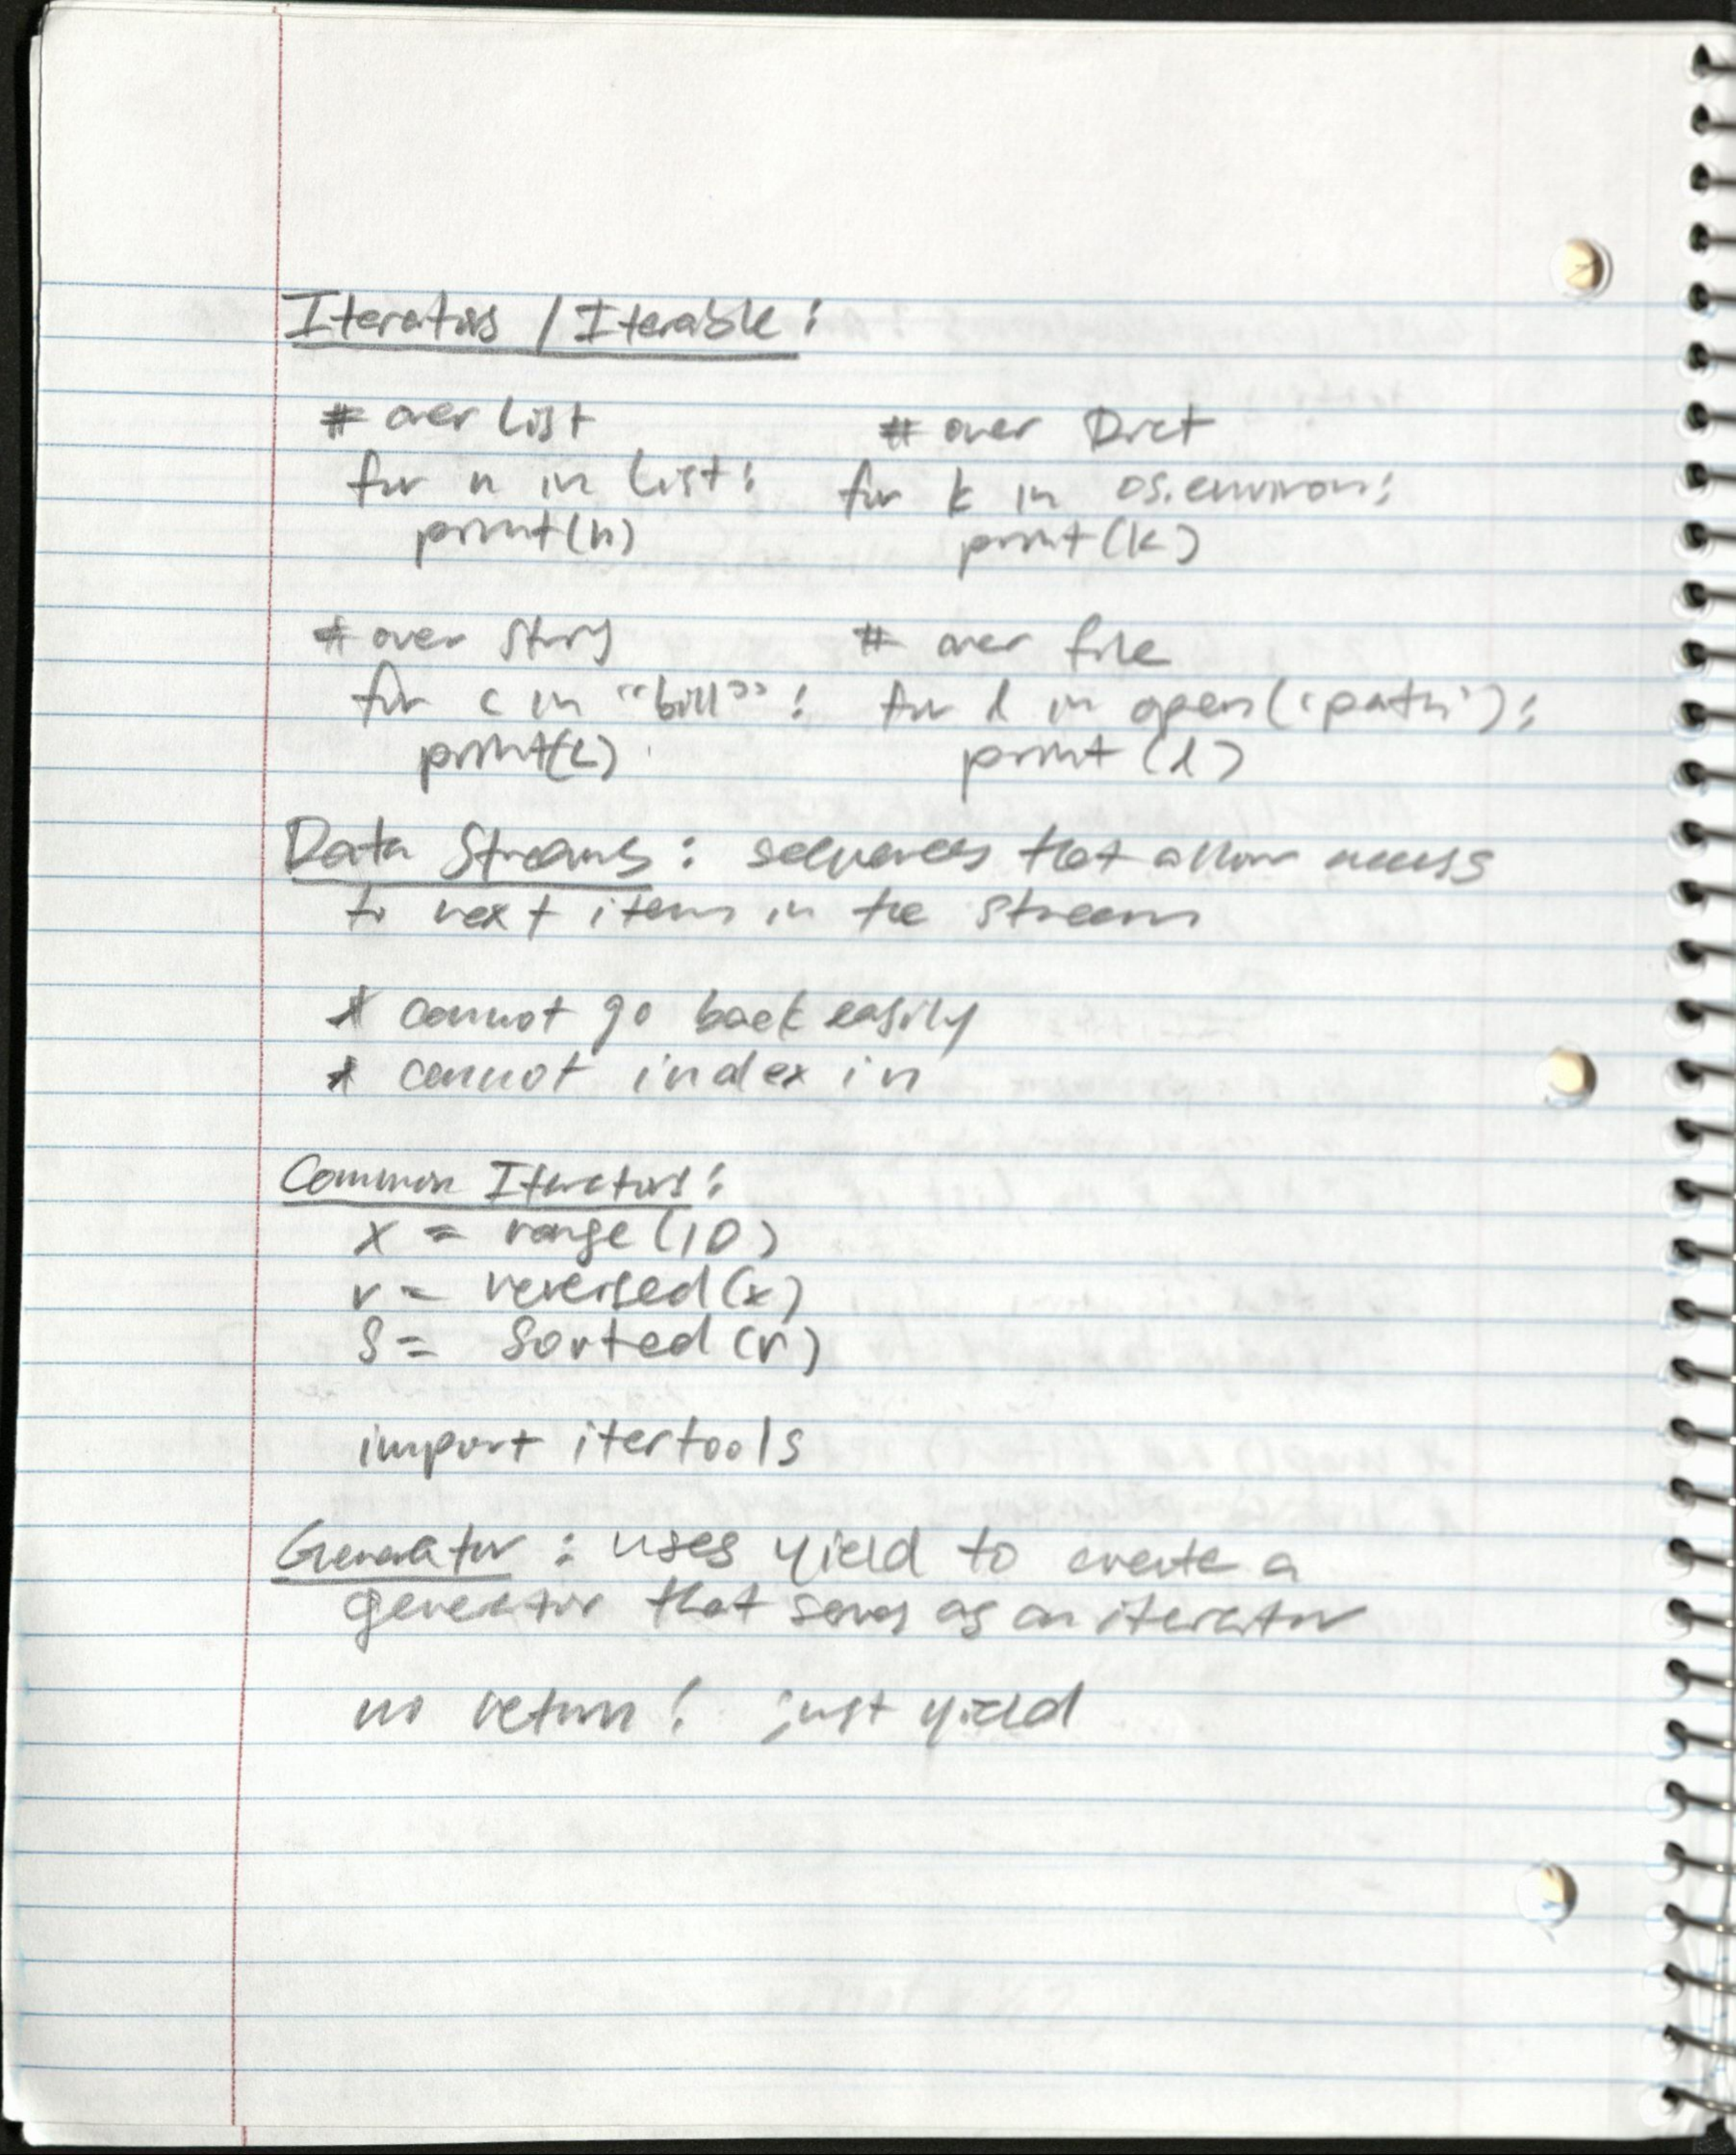 Iterators / Iterable:
# over list
for n in list:
print(n)
# over Dict
for k in os.environ:
print(k)
# over string
for c in "bill":
print(c)
# over file
for l in open('path'):
print(l)
Data Streams: sequences that allow access
to next item in the stream
* cannot go back easily
* cannot index in
Common Iterators:
x = range(10)
r = reversed(x)
S = Sorted(r)
import itertools
Generator: uses yield to create a
generator that serves as an iterator
no return! just yield